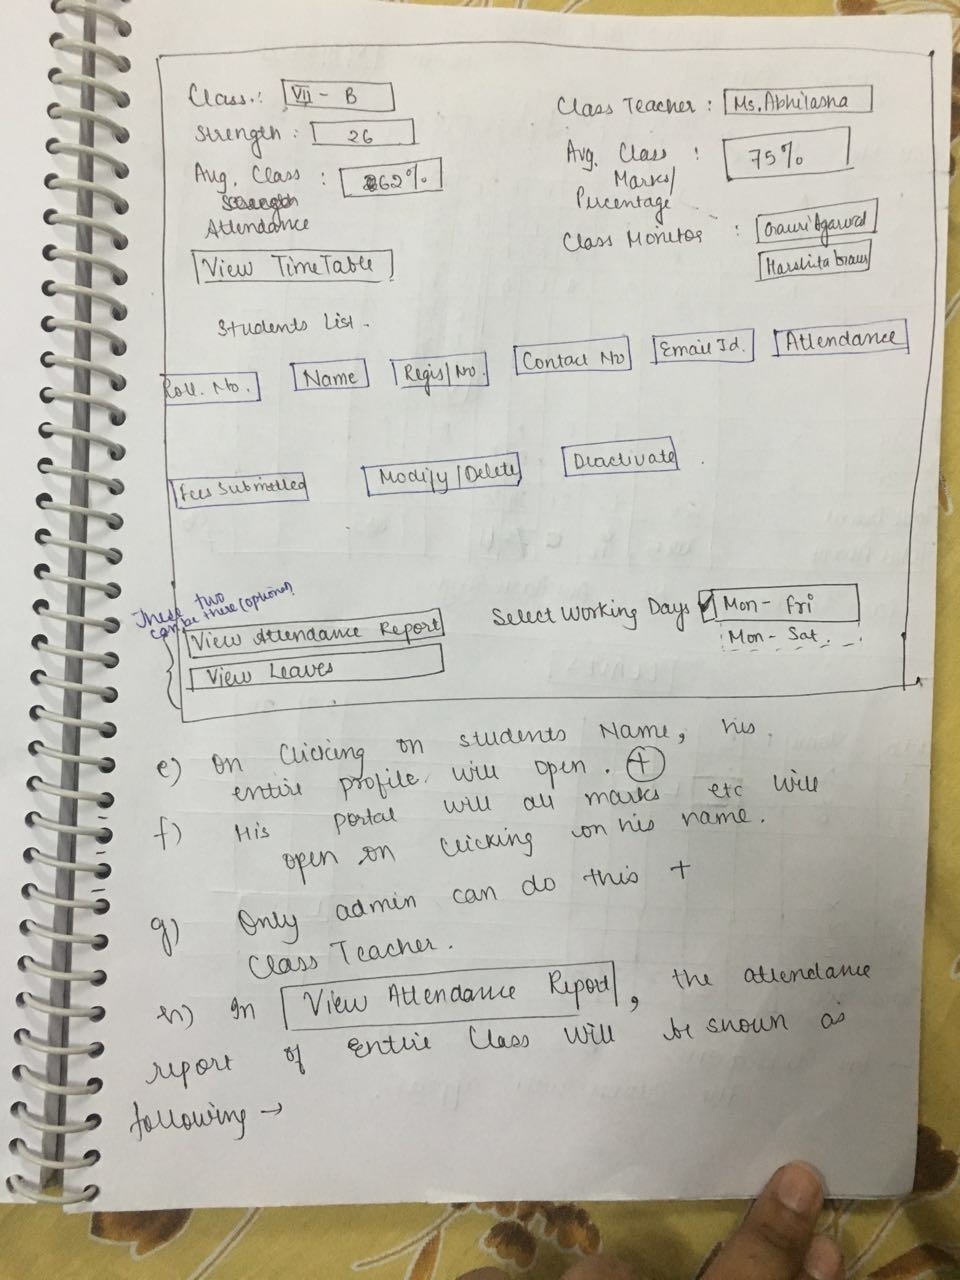 Class.: VII - B
Class Teacher : Ms. Abhilasha
Strength : 26
Avg. Class : 62%
Attendance
Avg. Class : 75%
Marks/
Percentage
Class Monitor : Gauri Agarwal
Harshita
View TimeTable
Students List.
Roll. No.
Name
Regis/No.
Contact No
Email Id.
Attendance
Fees Submitted
Modify/Delete
Deactivate
These two
can be there (optional)
View Attendance Report
View Leaves
Select Working Days Mon - Fri
Mon - Sat.
e) On Clicking on students Name, his
entire profile will open. +
f) His portal will all marks etc will
open on clicking on his name.
g) Only admin can do this +
Class Teacher.
h) In View Attendance Report, the attendance
report of Entire Class will be shown as
following →